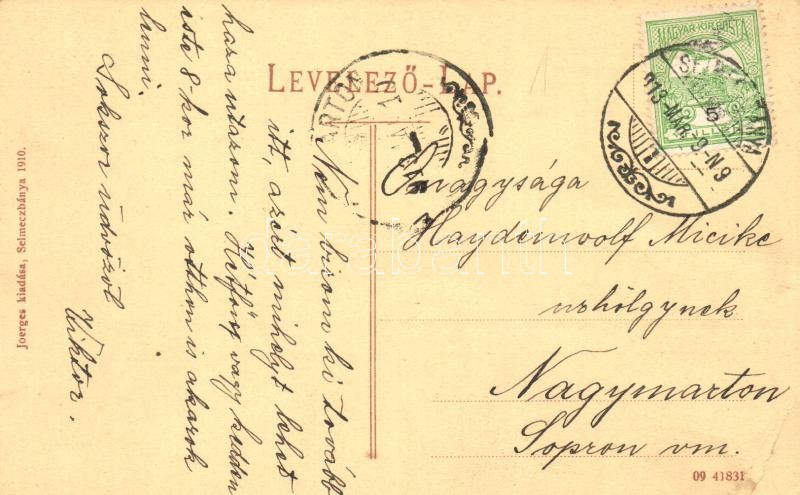 LEVELEZŐ-LAP.
MAGYAR KIR. POSTA
913 MÁR
Nem birom ki tovább
itt, azért mihelyt lehet
haza utazom. Hétfőn vagy kedden
este 8-kor már otthon is akarok
lenni.
Sokszor üdvözöl
Viktor.
Őnagysága
Haydenwolf Micike
urhölgynek
Nagymarton
Sopron vm.
Joerges kiadása, Selmeczbánya 1910.
09 41831
darabanth